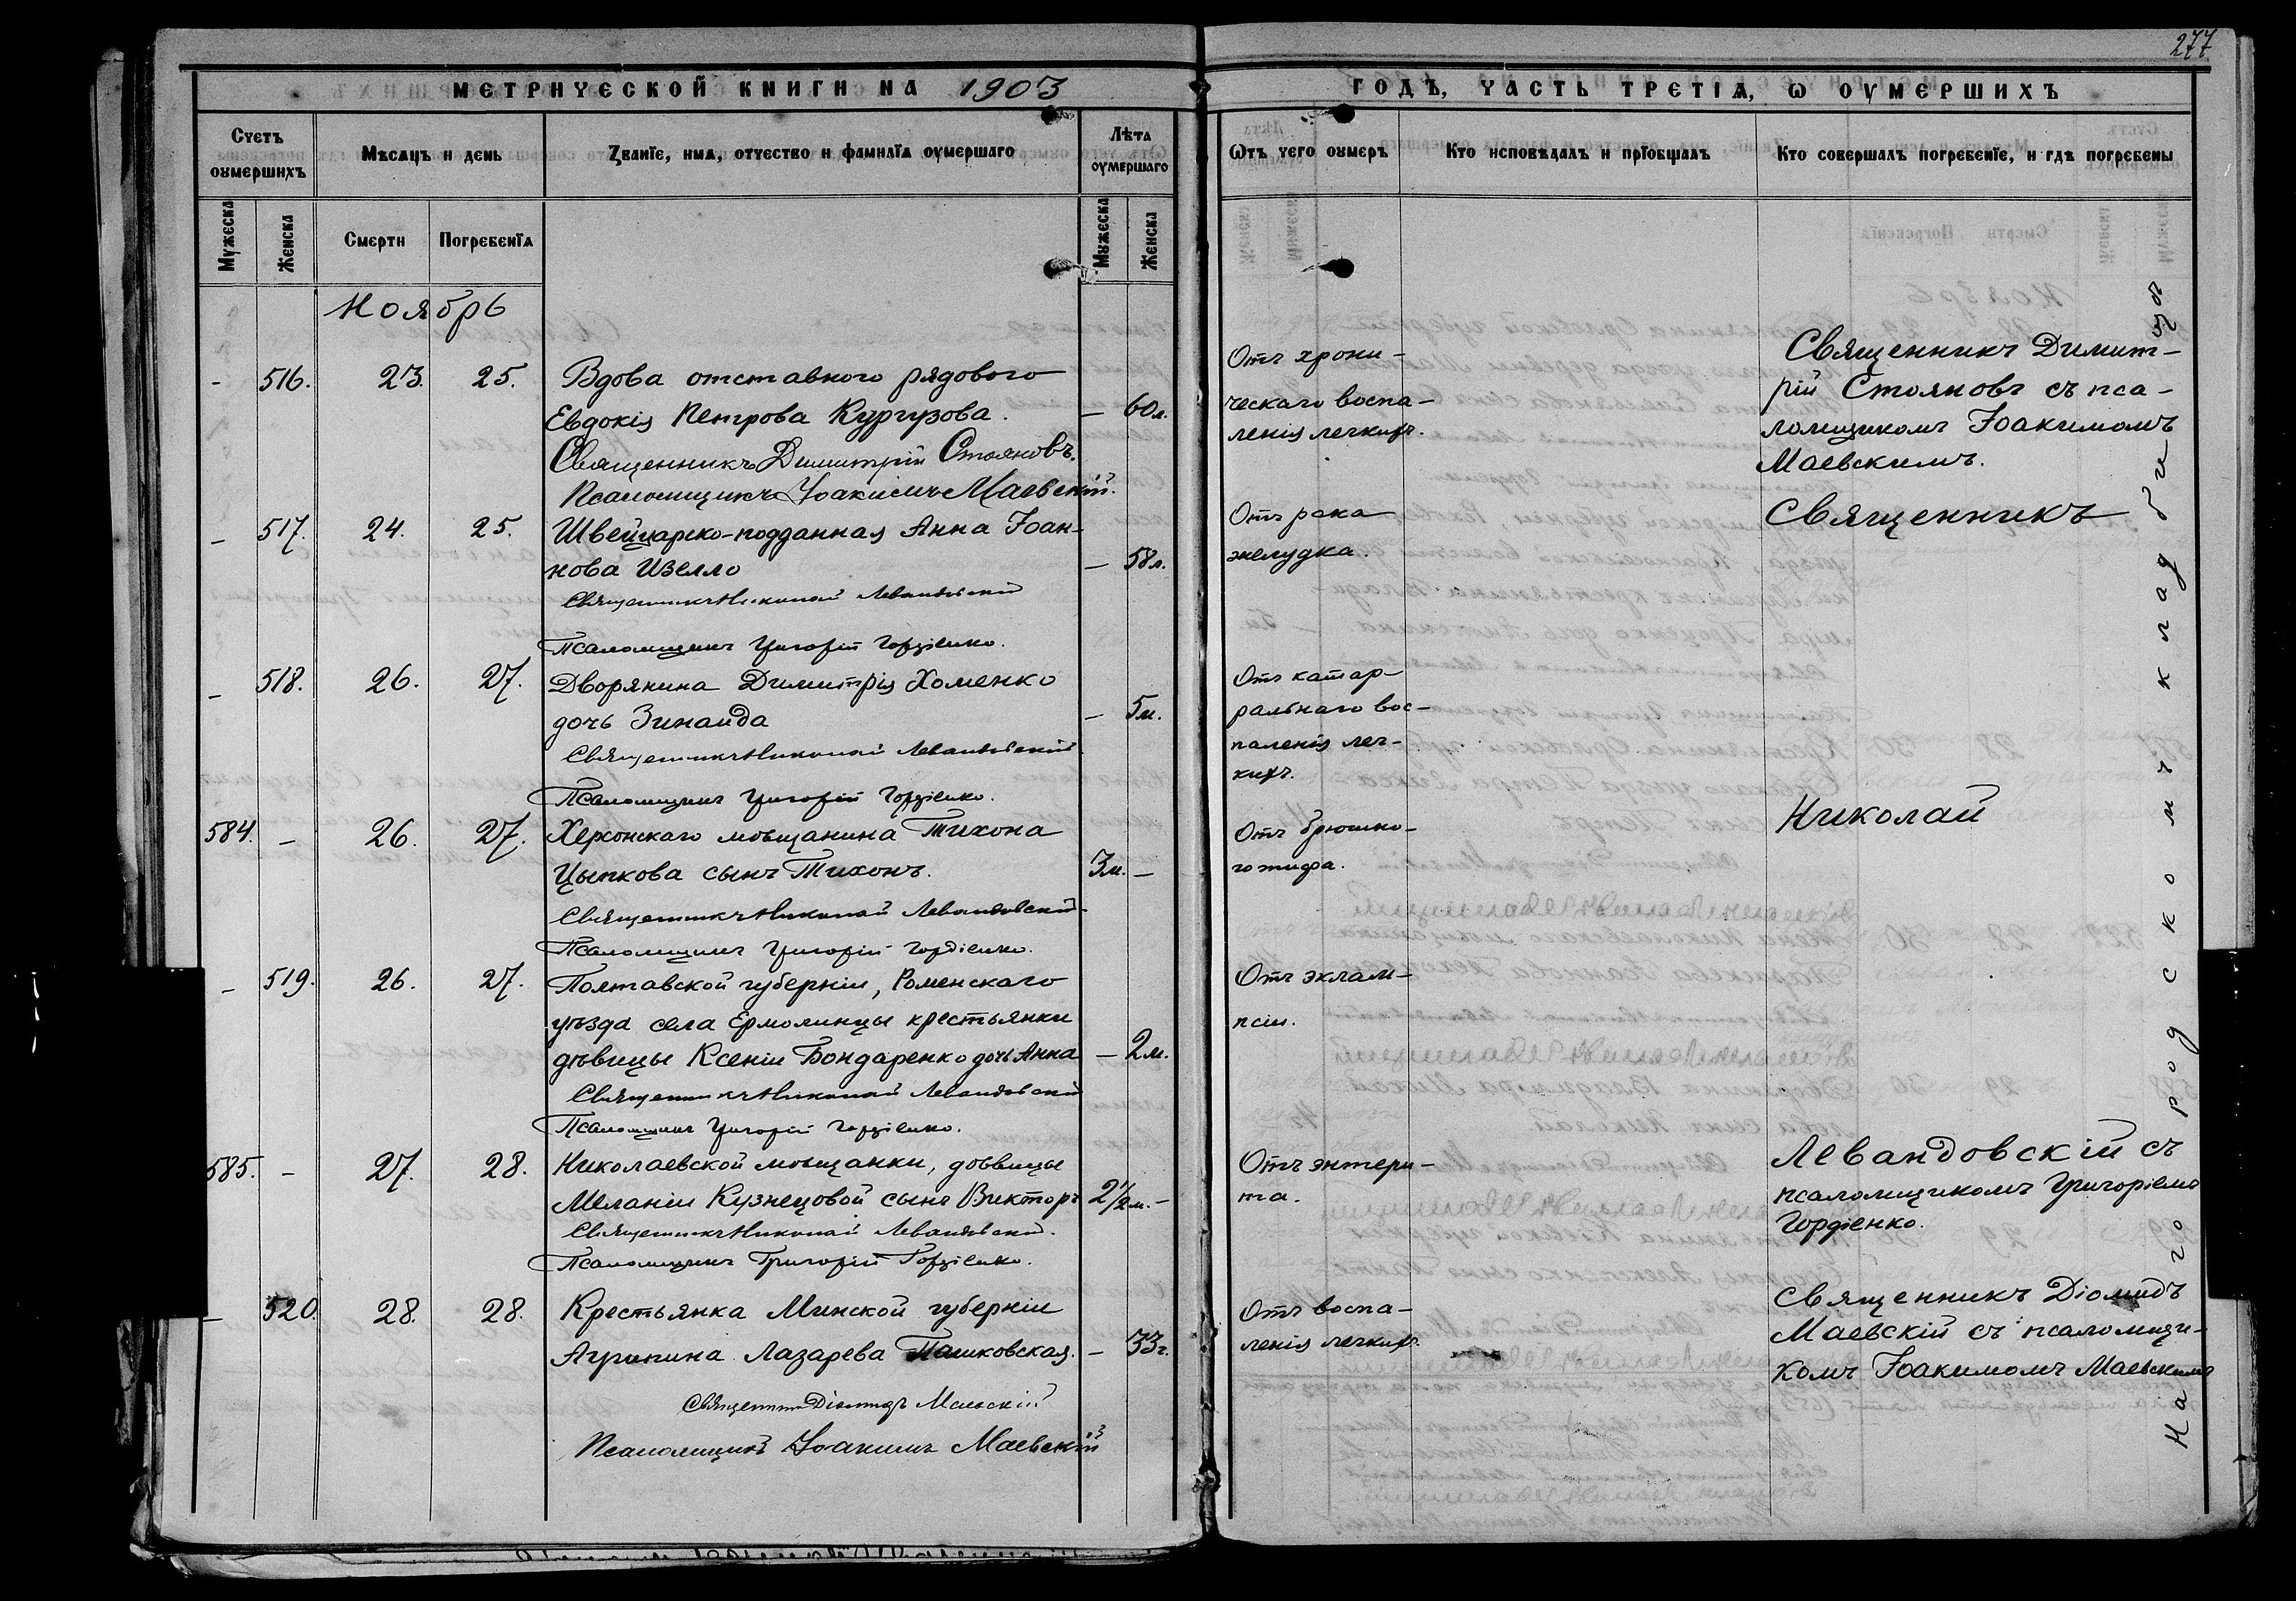 277
МЕТРИЧЕСКОЙ КНИГИ НА 1903
ГОДЪ, ЧАСТЬ ТРЕТІѦ, Ѡ ОУМЕРШИХЪ
Счетъ оумершихъ
Мѣсяцъ и день
Званїе, имѧ, отчество и фамилїѧ оумершаго
Лѣта оумершаго
Ѿтъ чего оумеръ
Кто исповѣдалъ и прїобщалъ
Кто совершалъ погребенїе, и гдѣ погребены
Мужеска
Женска
Смерти
Погребенїѧ
Мужеска
Женска
Ноябрь
- 516. 23. 25. Вдова отставного рядового
Евдокія Петрова Кургузова. — 60 л.
Священникъ Димитрій Стояновъ.
Псаломщикъ Іоакимъ Маевскій.
Отъ хрони-
ческаго воспа-
ленія легкихъ.
Священникъ Димит-
рій Стояновъ съ пса-
ломщикомъ Іоакимомъ
Маевскимъ.
- 517. 24. 25. Швейцарско-подданная Анна Іоан-
нова Изелло — 58 л.
Священникъ Николай Левандовскій
Псаломщикъ Григорій Гордіенко.
Отъ рака
желудка.
Священникъ
- 518. 26. 27. Дворянина Димитрія Хоменко
дочь Зинаида — 5 м.
Священникъ Николай Левандовскій
Псаломщикъ Григорій Гордіенко.
Отъ катар-
ральнаго вос-
паленія лег-
кихъ.
584. - 26. 27. Херсонскаго мѣщанина Тихона
Цыпкова сынъ Тихонъ. 3 м. —
Священникъ Николай Левандовскій
Псаломщикъ Григорій Гордіенко.
Отъ брюшно-
го тифа.
Николай
- 519. 26. 27. Полтавской губерніи, Роменскаго
уѣзда села Ермолинцы крестьянки
дѣвицы Ксеніи Бондаренко дочь Анна — 2 м.
Священникъ Николай Левандовскій
Псаломщикъ Григорій Гордіенко.
Отъ эклам-
псіи.
585. - 27. 28. Николаевской мѣщанки, дѣвицы
Меланіи Кузнецовой сынъ Викторъ 2 1/2 м. -
Священникъ Николай Левандовскій.
Псаломщикъ Григорій Гордіенко.
Отъ энтери-
та.
Левандовскій съ
псаломщикомъ Григоріемъ
Гордіенко.
- 520. 28. 28. Крестьянка Минской губерніи
Агрипина Лазарева Пашковская. — 33 г.
Священникъ Діомидъ Маевскій
Псаломщикъ Іоакимъ Маевскій
Отъ воспа-
ленія легкихъ.
Священникъ Діомидъ
Маевскій съ псаломщи-
комъ Іоакимомъ Маевскимъ
На городскомъ кладбищѣ